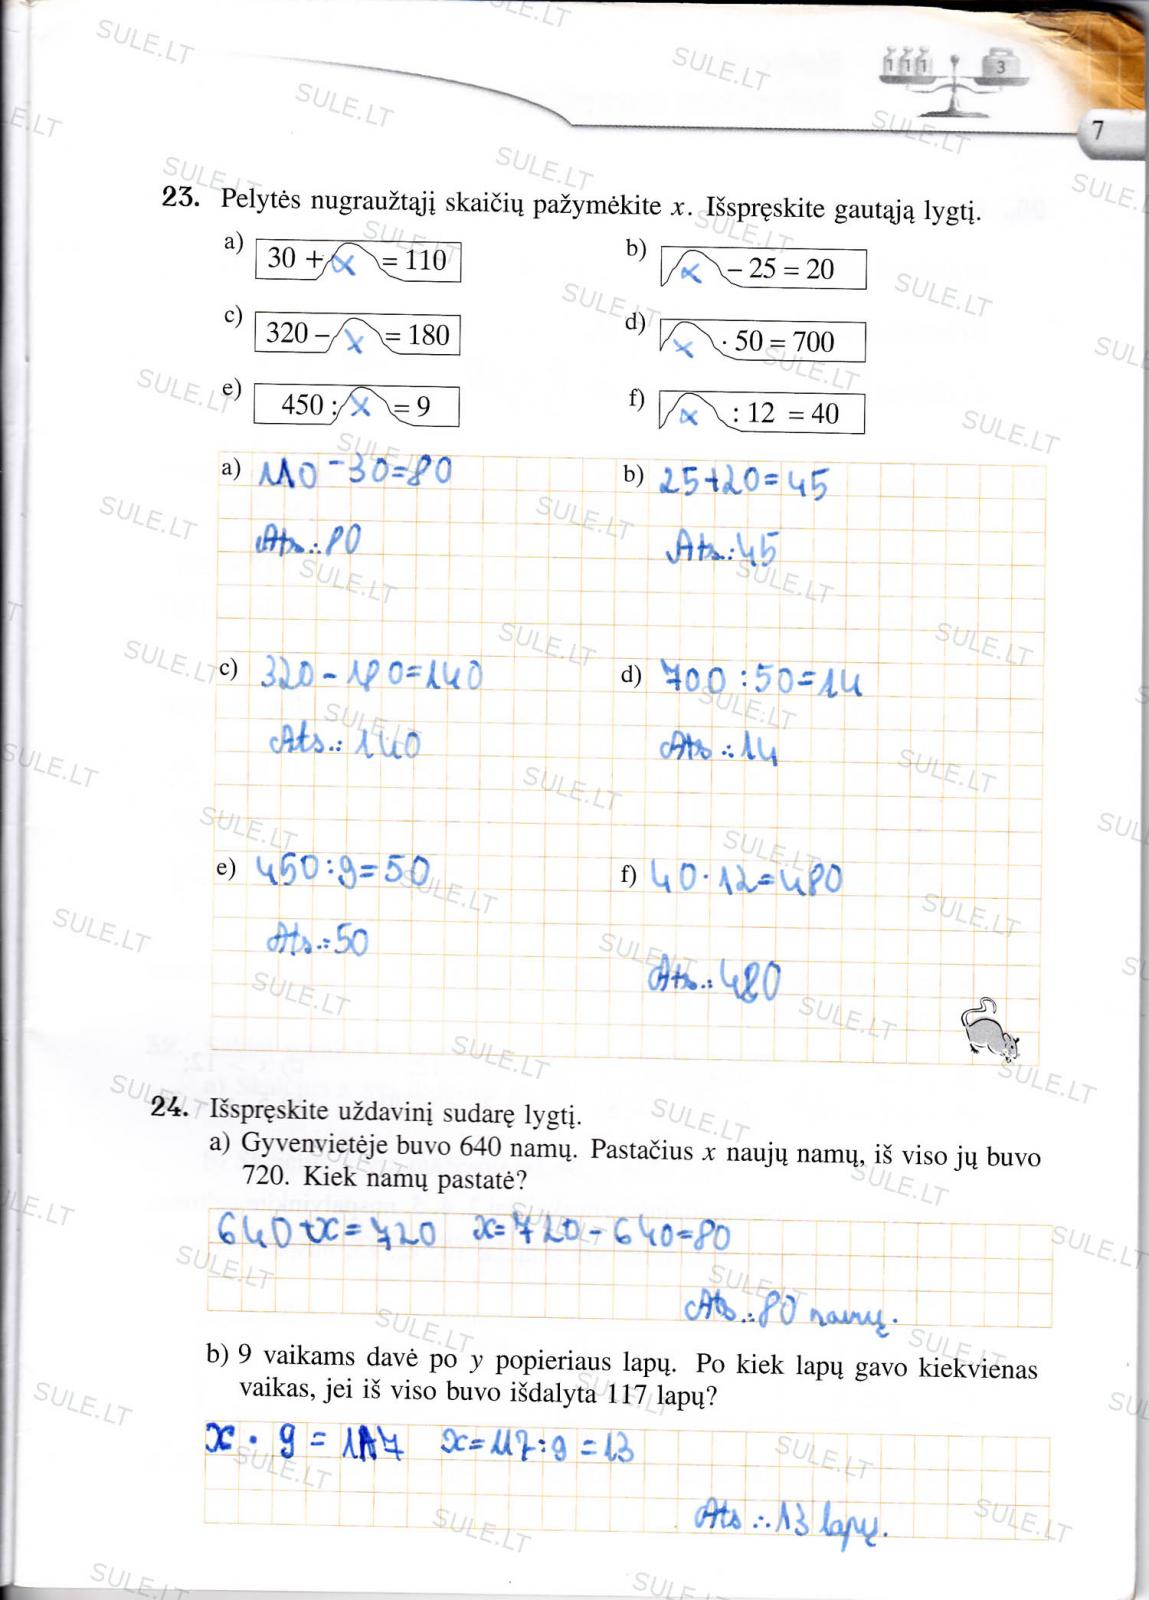 1 1 1 3
7
23. Pelytės nugraužtąjį skaičių pažymėkite x. Išspręskite gautąją lygtį.
a) 30 + x = 110
b) x – 25 = 20
c) 320 – x = 180
d) x · 50 = 700
e) 450 : x = 9
f) x : 12 = 40
a) 110 - 30 = 80
b) 25 + 20 = 45
Ats.: 80
Ats.: 45
c) 320 - 180 = 140
d) 700 : 50 = 14
Ats.: 140
Ats.: 14
e) 450 : 9 = 50
f) 40 · 12 = 480
Ats.: 50
Ats.: 480
24. Išspręskite uždavinį sudarę lygtį.
a) Gyvenvietėje buvo 640 namų. Pastačius x naujų namų, iš viso jų buvo
720. Kiek namų pastatė?
640 + x = 720 x = 720 - 640 = 80
Ats.: 80 namų.
b) 9 vaikams davė po y popieriaus lapų. Po kiek lapų gavo kiekvienas
vaikas, jei iš viso buvo išdalyta 117 lapų?
x · 9 = 117 x = 117 : 9 = 13
Ats.: 13 lapų.
SULE.LT